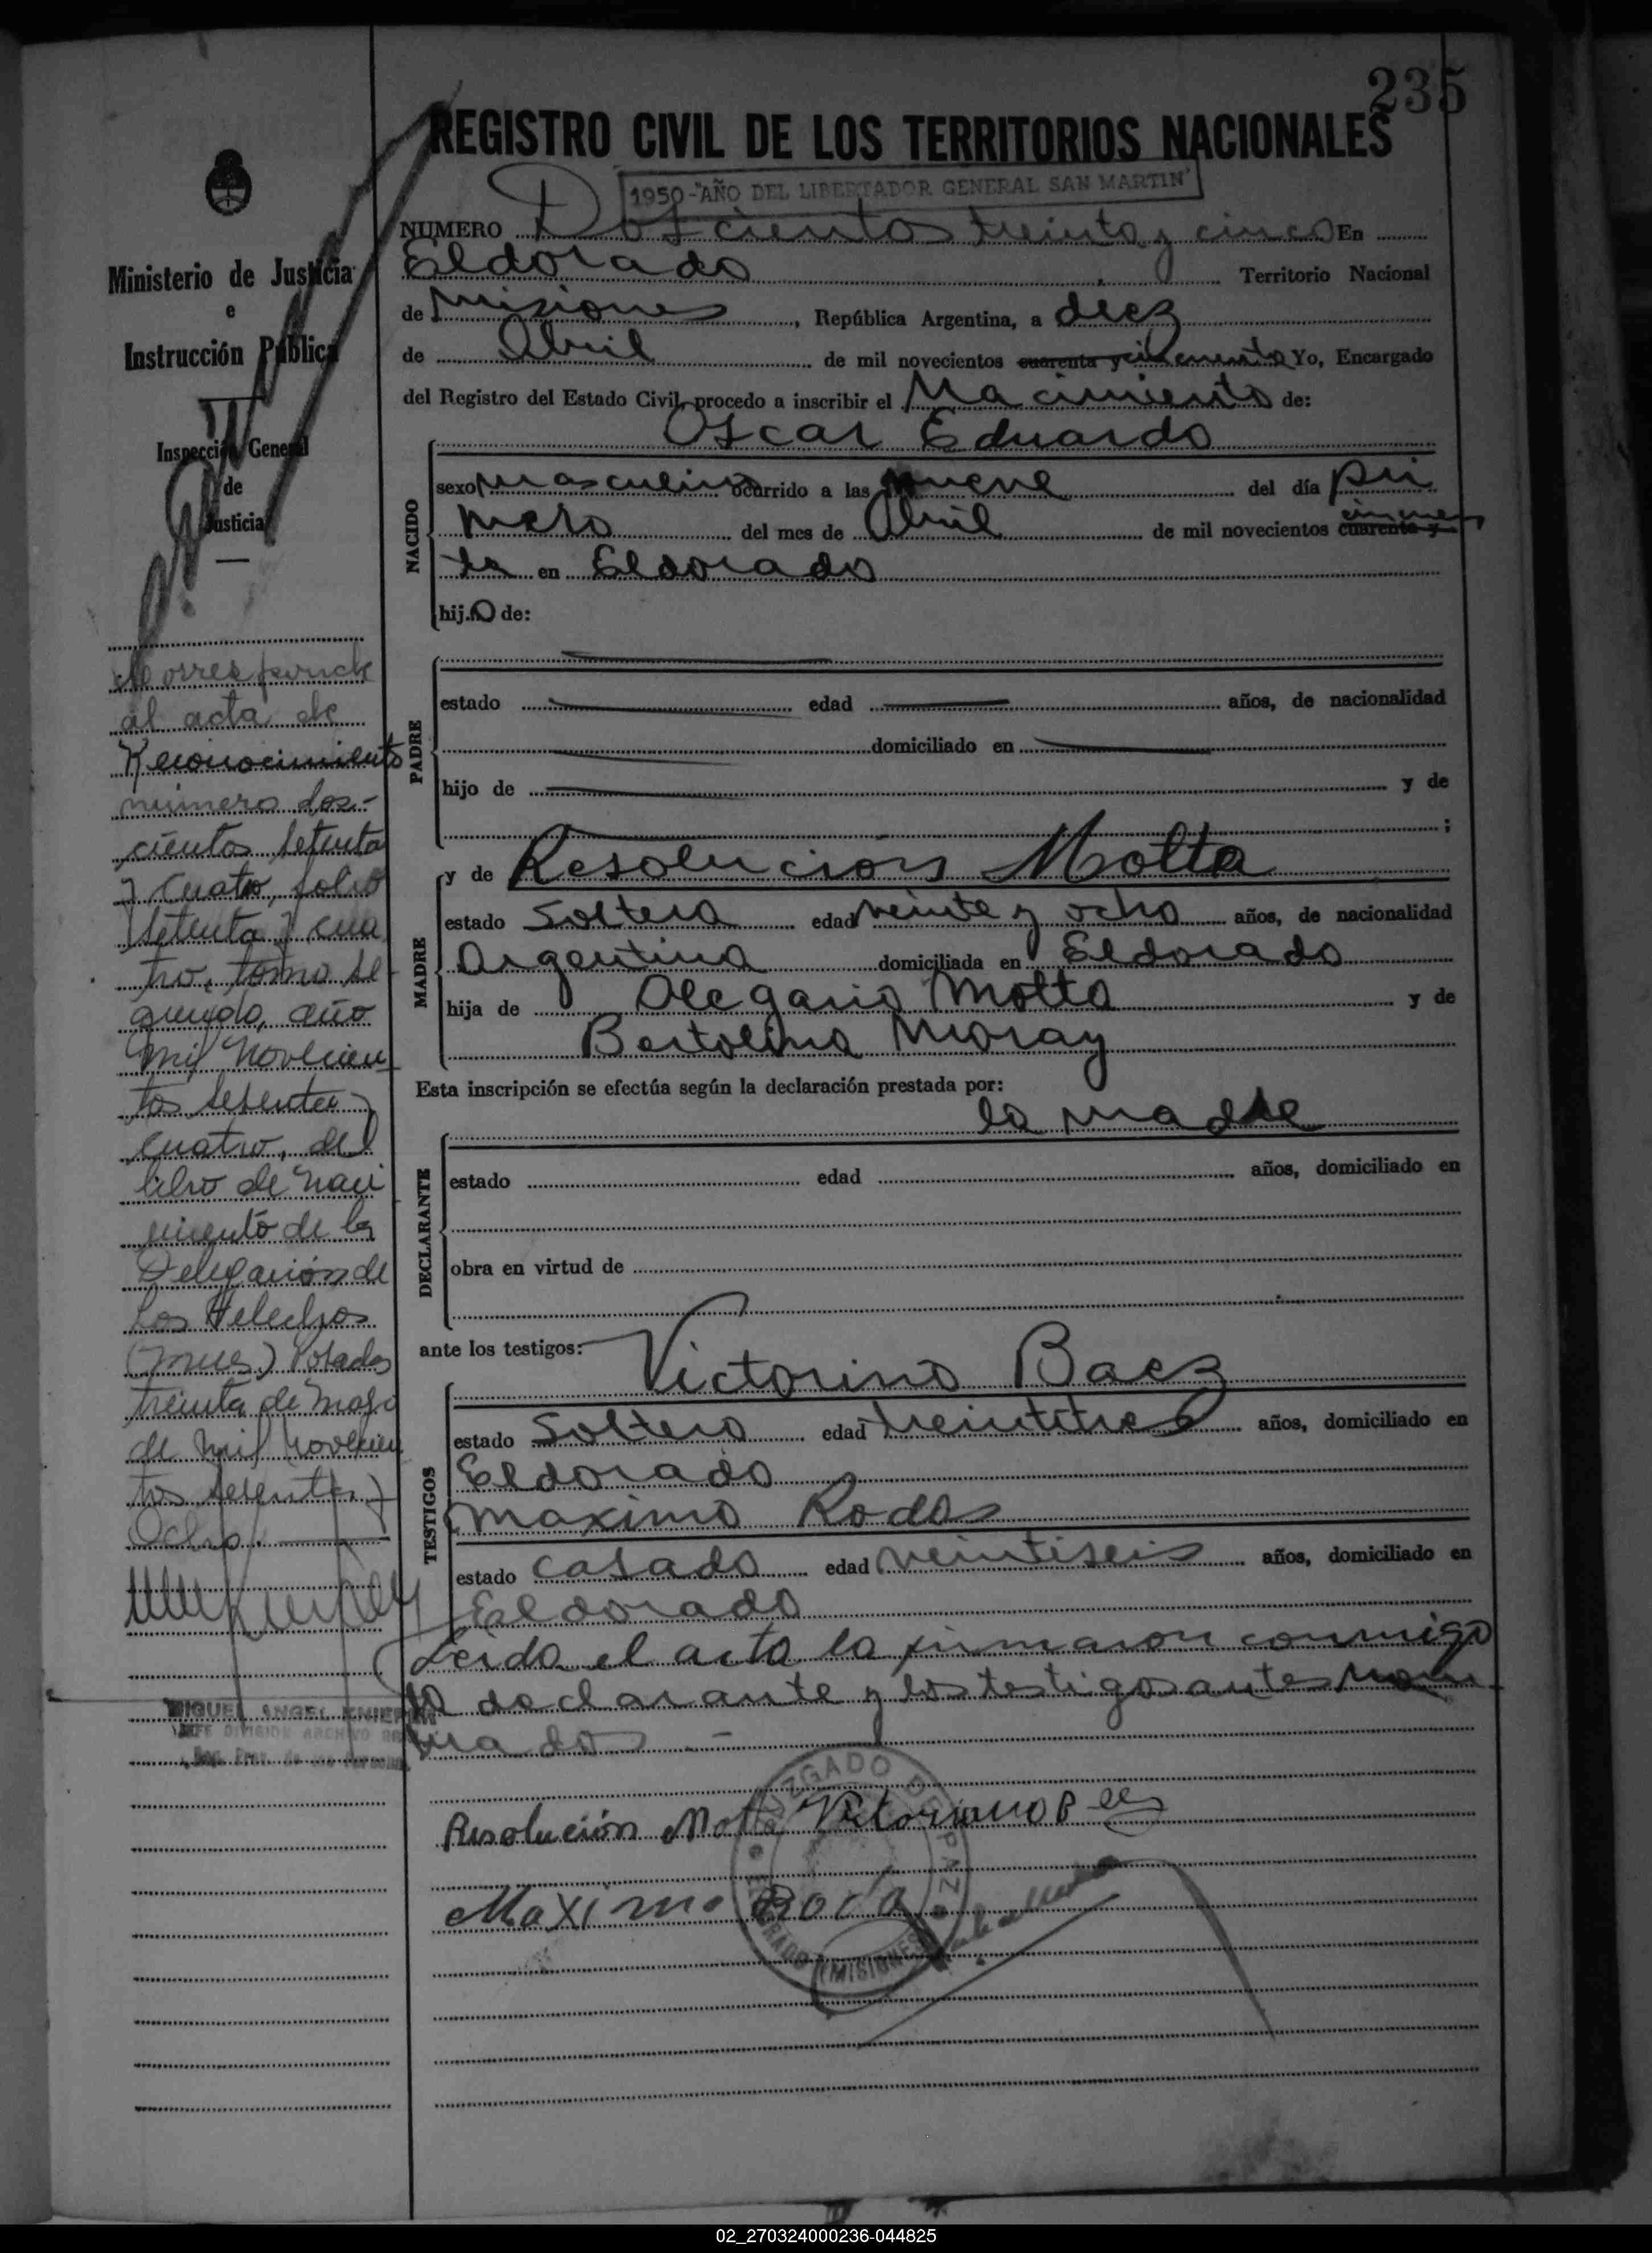 235
REGISTRO CIVIL DE LOS TERRITORIOS NACIONALES
1950-"AÑO DEL LIBERTADOR GENERAL SAN MARTIN"
NUMERO Doscientos treinta y cinco En
Eldorado Territorio Nacional
de Misiones, República Argentina, a diez
de Abril de mil novecientos cuarenta y cincuenta Yo, Encargado
del Registro del Estado Civil, procedo a inscribir el Nacimiento de:
Oscar Eduardo
NACIDO
sexo masculino ocurrido a las nueve del día pri
mero del mes de Abril de mil novecientos cuarenta y cincuen
ta en Eldorado
hijo de:
PADRE
estado edad años, de nacionalidad
domiciliado en
hijo de y de
;
y de Resolución Motta
MADRE
estado Soltera edad veinte y ocho años, de nacionalidad
Argentina domiciliada en Eldorado
hija de Olegario Motta y de
Bertolina Moray
Esta inscripción se efectúa según la declaración prestada por:
la madre
DECLARANTE
estado edad años, domiciliado en
obra en virtud de
ante los testigos: Victorino Baez
TESTIGOS
estado Soltero edad treintitres años, domiciliado en
Eldorado
Maximo Rodas
estado casado edad veintiseis años, domiciliado en
Eldorado
Leida el acta la firmaron conmigo
la declarante y los testigos antes nom
brados.-
Resolución Motta Victoriano Baez
Maximo Roda
JUZGADO DE PAZ
ELDORADO (MISIONES)
Ministerio de Justicia
e
Instrucción Pública
Inspección General
de
Justicia
Corresponde
al acta de
Reconocimiento
número dos-
cientos setenta
y cuatro, folio
setenta y cua
tro, tomo se
gundo, año
mil novecien
tos sesenta y
cuatro, del
libro de naci
miento de la
Delegación de
Los Helechos
(Mnes) Posadas
treinta de mayo
de mil novecien
tos sesenta y
Ocho.
MIGUEL ANGEL KNIEPER
JEFE DIVISION ARCHIVO
02_270324000236-044825